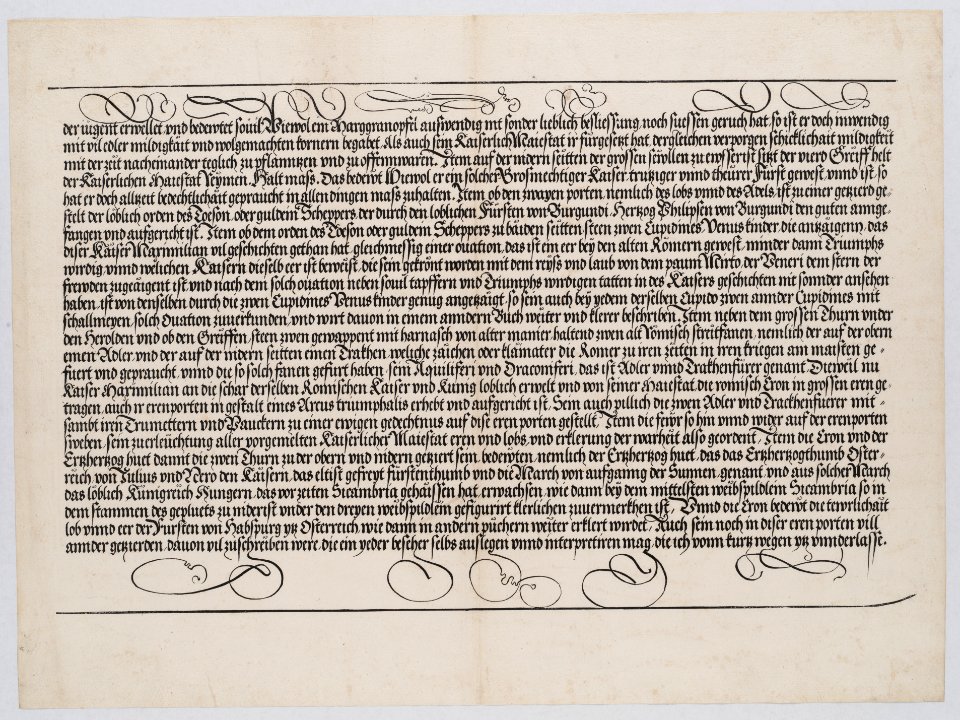 der tugent erwellet, vnd bedewtet souil. Wiewol ein Marggranopffl auswendig nit sonder lieblich besliessung, noch suessen geruch hat, so ist er doch inwendig
mit vil edler mildigkait vnd wolgemachten kornern begabet. Als auch sein Kaiserlich Maiestat ir fürgesetzt hat, dergleichen verporgen schicklichait mildigkeit
mit der zeit nacheinander teglich zu pflanntzen vnd zu offennwaren. Item auf der nidern seitten der grossen sewllen zu ewsserist sitzt der vierd Greiff helt
der Kaiserlichen Maiestat Reymen. Halt mass. Das bedewt Wiewol er ein solcher Grosmechtiger Kaiser trutziger vnnd theürer Fürst gewest, vnnd ist, so
hat er doch alltzeit bedechtlichait gepraucht in allen dingen mass zuhalten. Item ob den zwayen porten nemlich des lobs vnnd des Adels, ist zu einer getzierd ge-
stelt der löblich orden des Toeson, oder guldem Scheppers, der durch den loblichen Fürsten von Burgundi, Hertzog Philipsen von Burgundi den guten annge-
fangen vnd aufgericht ist. Item ob dem orden des Toeson oder guldem Scheppers zu baiden seitten, steen zwen Cupidines, Venus kinder, die antzaigenn, das
diser Kaiser Maximilian vil geschichten gethan hat, gleichmessig einer ouation, das ist ein eer bey den alten Römern gewest, minder dann Triumphs
wirdig, vnnd welichen Kaisern dieselb eer ist beweist, die sein gekrönt worden mit dem reyss vnd laub von dem paum Mirto der Veneri dem stern der
frewden zugeaigent ist vnd nach dem solch ouation neben souil tapffern vnd Triumphs wirdigen tatten in des Kaisers geschichten mit sonnder ansehen
haben, ist von denselben durch die zwen Cupidines Venus kinder genug angetzaigt, so sein auch bey yedem derselben Cupido zwen annder Cupidines mit
schallmeyen, solch Ouation zuuerkunden, vnd wirt dauon in einem anndern Buch weiter vnd klerer beschriben. Item neben dem grossen Thurn vnder
den Herolden vnd ob den Greiffen, steen zwen gewappent mit harnasch von alter manier haltend zwen alt Römisch streitfanen, nemlich der auf der obern
einen Adler, vnd der auf der nidern seitten einen Trakhen, weliche zaichen oder klainater die Romer zu iren zeiten in iren kriegen am maisten ge-
fuert vnd gepraucht, vnnd die so solch fanen gefurt haben, sein Aquiliferi vnd Draconiferi, das ist Adler vnnd Trakhenfürer genant. Dieweil nu
Kaiser Maximilian an die schar derselben Romischen Kaiser vnd Kunig loblich erwelt vnd von seiner Maiestat die romisch Cron in grossen eren ge-
tragen, auch ir erenporten in gestalt eines Arcus triumphalis erhebt vnd aufgericht ist, Sein auch pillich die zwen Adler vnd Trackhenfüerer mit-
sambt iren Trumettern vnd Pauckern zu einer ewigen gedechtnus auf dise eren porten gestellt. Item die fewr so hin vnnd wider auf der erenporten
sweben, sein zuerleüchtung aller vorgemelten Kaiserlicher Maiestat eren vnd lobs, vnd erklerung der warheit also geordent. Item die Cron vnd der
Ertzhertzog huet damit die zwen Thurn zu der obern vnd nidern getziert sein, bedewten, nemlich der Ertzhertzog huet, das das Ertzhertzogthumb Oster-
reich von Julius vnd Nero den Kaisern, das eltist gefreyt fürstenthumb vnd die March von aufganng der Sunnen, genant, vnd aus solcher March
das löblich Künigreich Hungern, das vor zeiten Sicambria gehaissen hat, erwachsen, wie dann bey dem mittelsten weibspildlein Sicambria so in
dem stammen des gepluets zu niderist vnder den dreyen weibspildlein gefigurirt klerlichen zuuermerkhen ist, Vnnd die Cron bedewt die tewrlichait
lob vnnd eer der Fursten von Habspurg ytz Osterreich wie dann in andern püchern weiter erklert wirdet, Auch sein noch in diser eren porten vill
annder getzierden, dauon vil zuschreiben were, die ein yeder bescher selbs auslegen vnnd interpretiren mag, die ich vonn kurtz wegen ytz vnnderlasse.